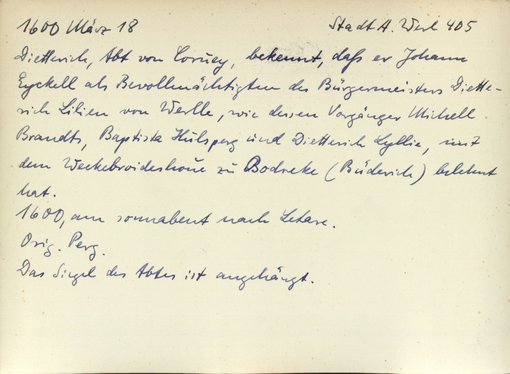 1600 März 18 Stadt A. Werl 405
Dietterich, Abt von Corvey, bekennt, daß er Johann
Eyckell als Bevollmächtigten des Bürgermeisters Diette-
rich Lilien von Werlle, wie dessen Vorgänger Michell
Brandts, Baptista Hulsperg und Dietterich Lyllie, mit
dem Weckebroideshove zu Bodreke (Büderich) belehnt
hat.
1600, am sonnabent nach Letare.
Orig. Perg.
Das Siegel des Abtes ist angehängt.